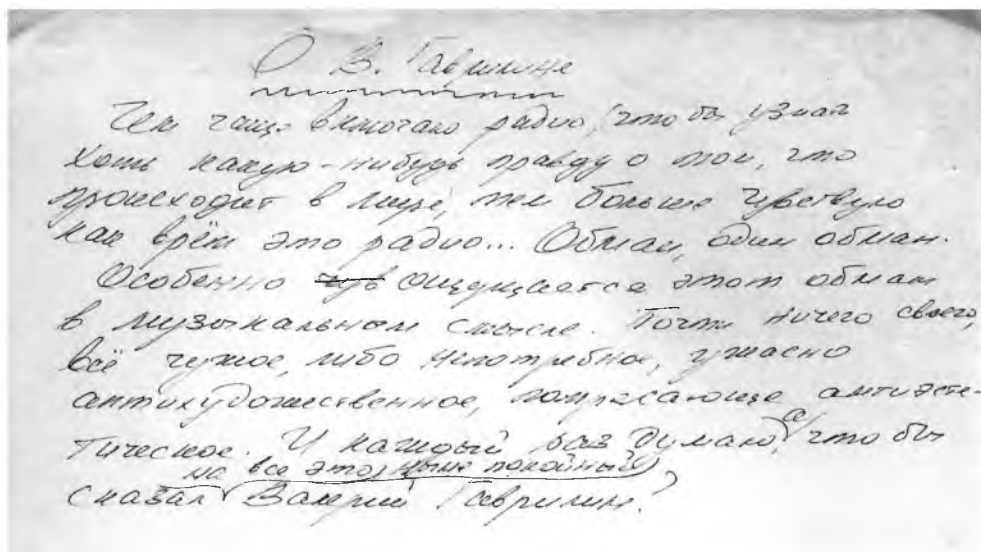 О В. Гаврилине
Чем чаще включаю радио, что бы узнать
хоть какую-нибудь правду о том, что
происходит в мире, тем больше чувствую
как врёт это радио... Обман, один обман.
Особенно чув ощущается этот обман
в музыкальном смысле. Почти ничего своего,
всё чужое, либо непотребное, ужасно
антихудожественное, потрясающе антиэсте-
тическое. И каждый раз думаю, а что бы
на все это, ныне покойный
сказал Валерий Гаврилин?